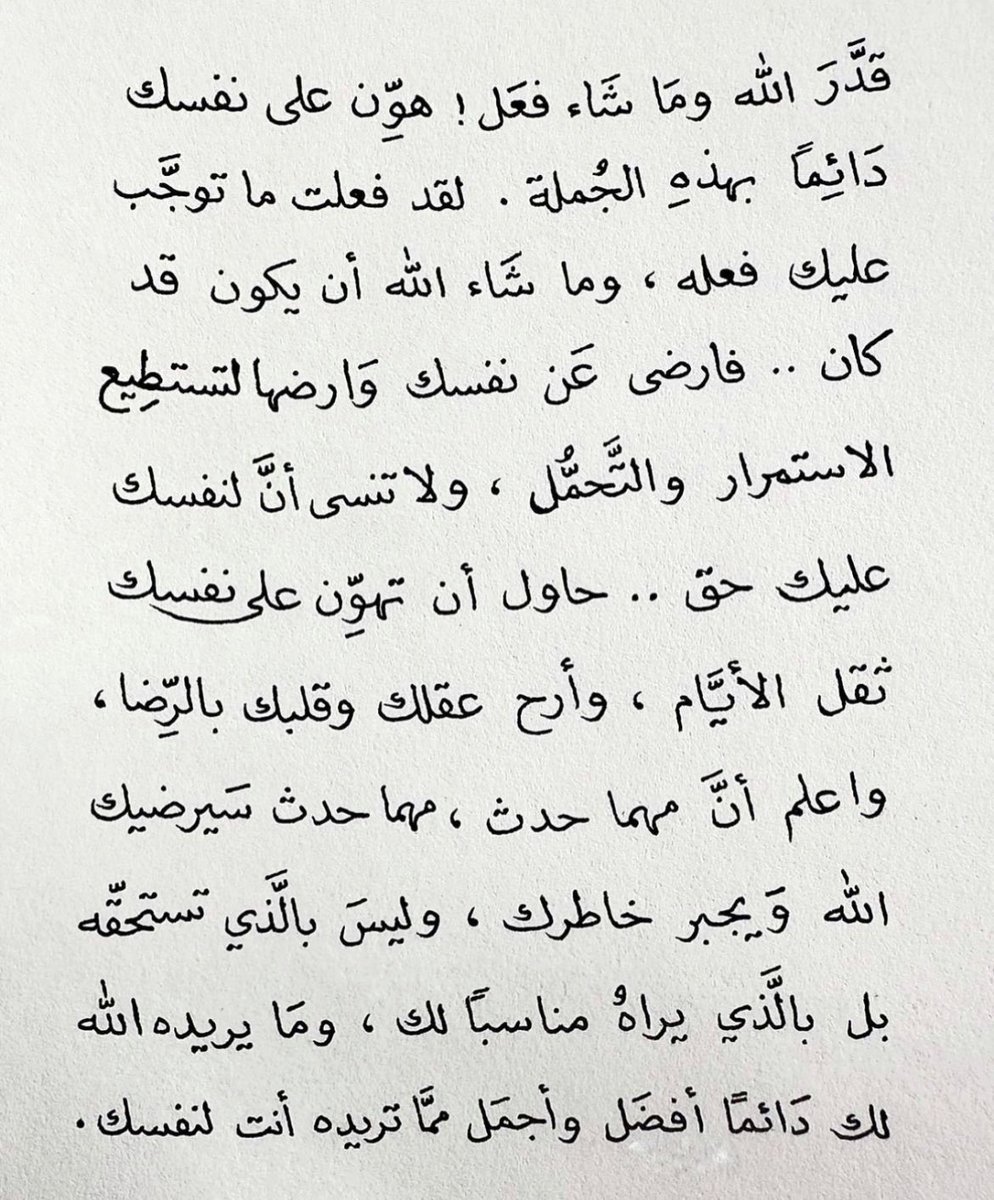 قَدَّرَ الله ومَا شَاء فعَل ! هوِّن على نفسك
دَائِمًا بهذهِ الجُملة . لقد فعلت ما توجَّب
عليك فعله ، وما شَاء الله أن يكون قد
كان .. فارضى عَن نفسك وَارضها لتستطِيع
الاستمرار والتَّحمُّل ، ولا تنسى أنَّ لنفسك
عليك حق .. حاول أن تهوِّن على نفسك
ثقل الأيَّام ، وأرح عقلك وقلبك بالرِّضا ،
واعلم أنَّ مهما حدث ، مهما حدث سَيرضيك
الله وَيجبر خاطرك ، وليسَ بالَّذي تستحقّه
بل بالَّذي يراهُ مناسبًا لك ، ومَا يريده الله
لك دَائمًا أفضَل وأجمَل ممَّا تريده أنت لنفسك .